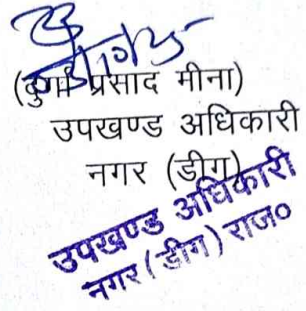 (दुर्गा प्रसाद मीना)
उपखण्ड अधिकारी
नगर (डीग)
उपखण्ड अधिकारी
नगर (डीग) राज०